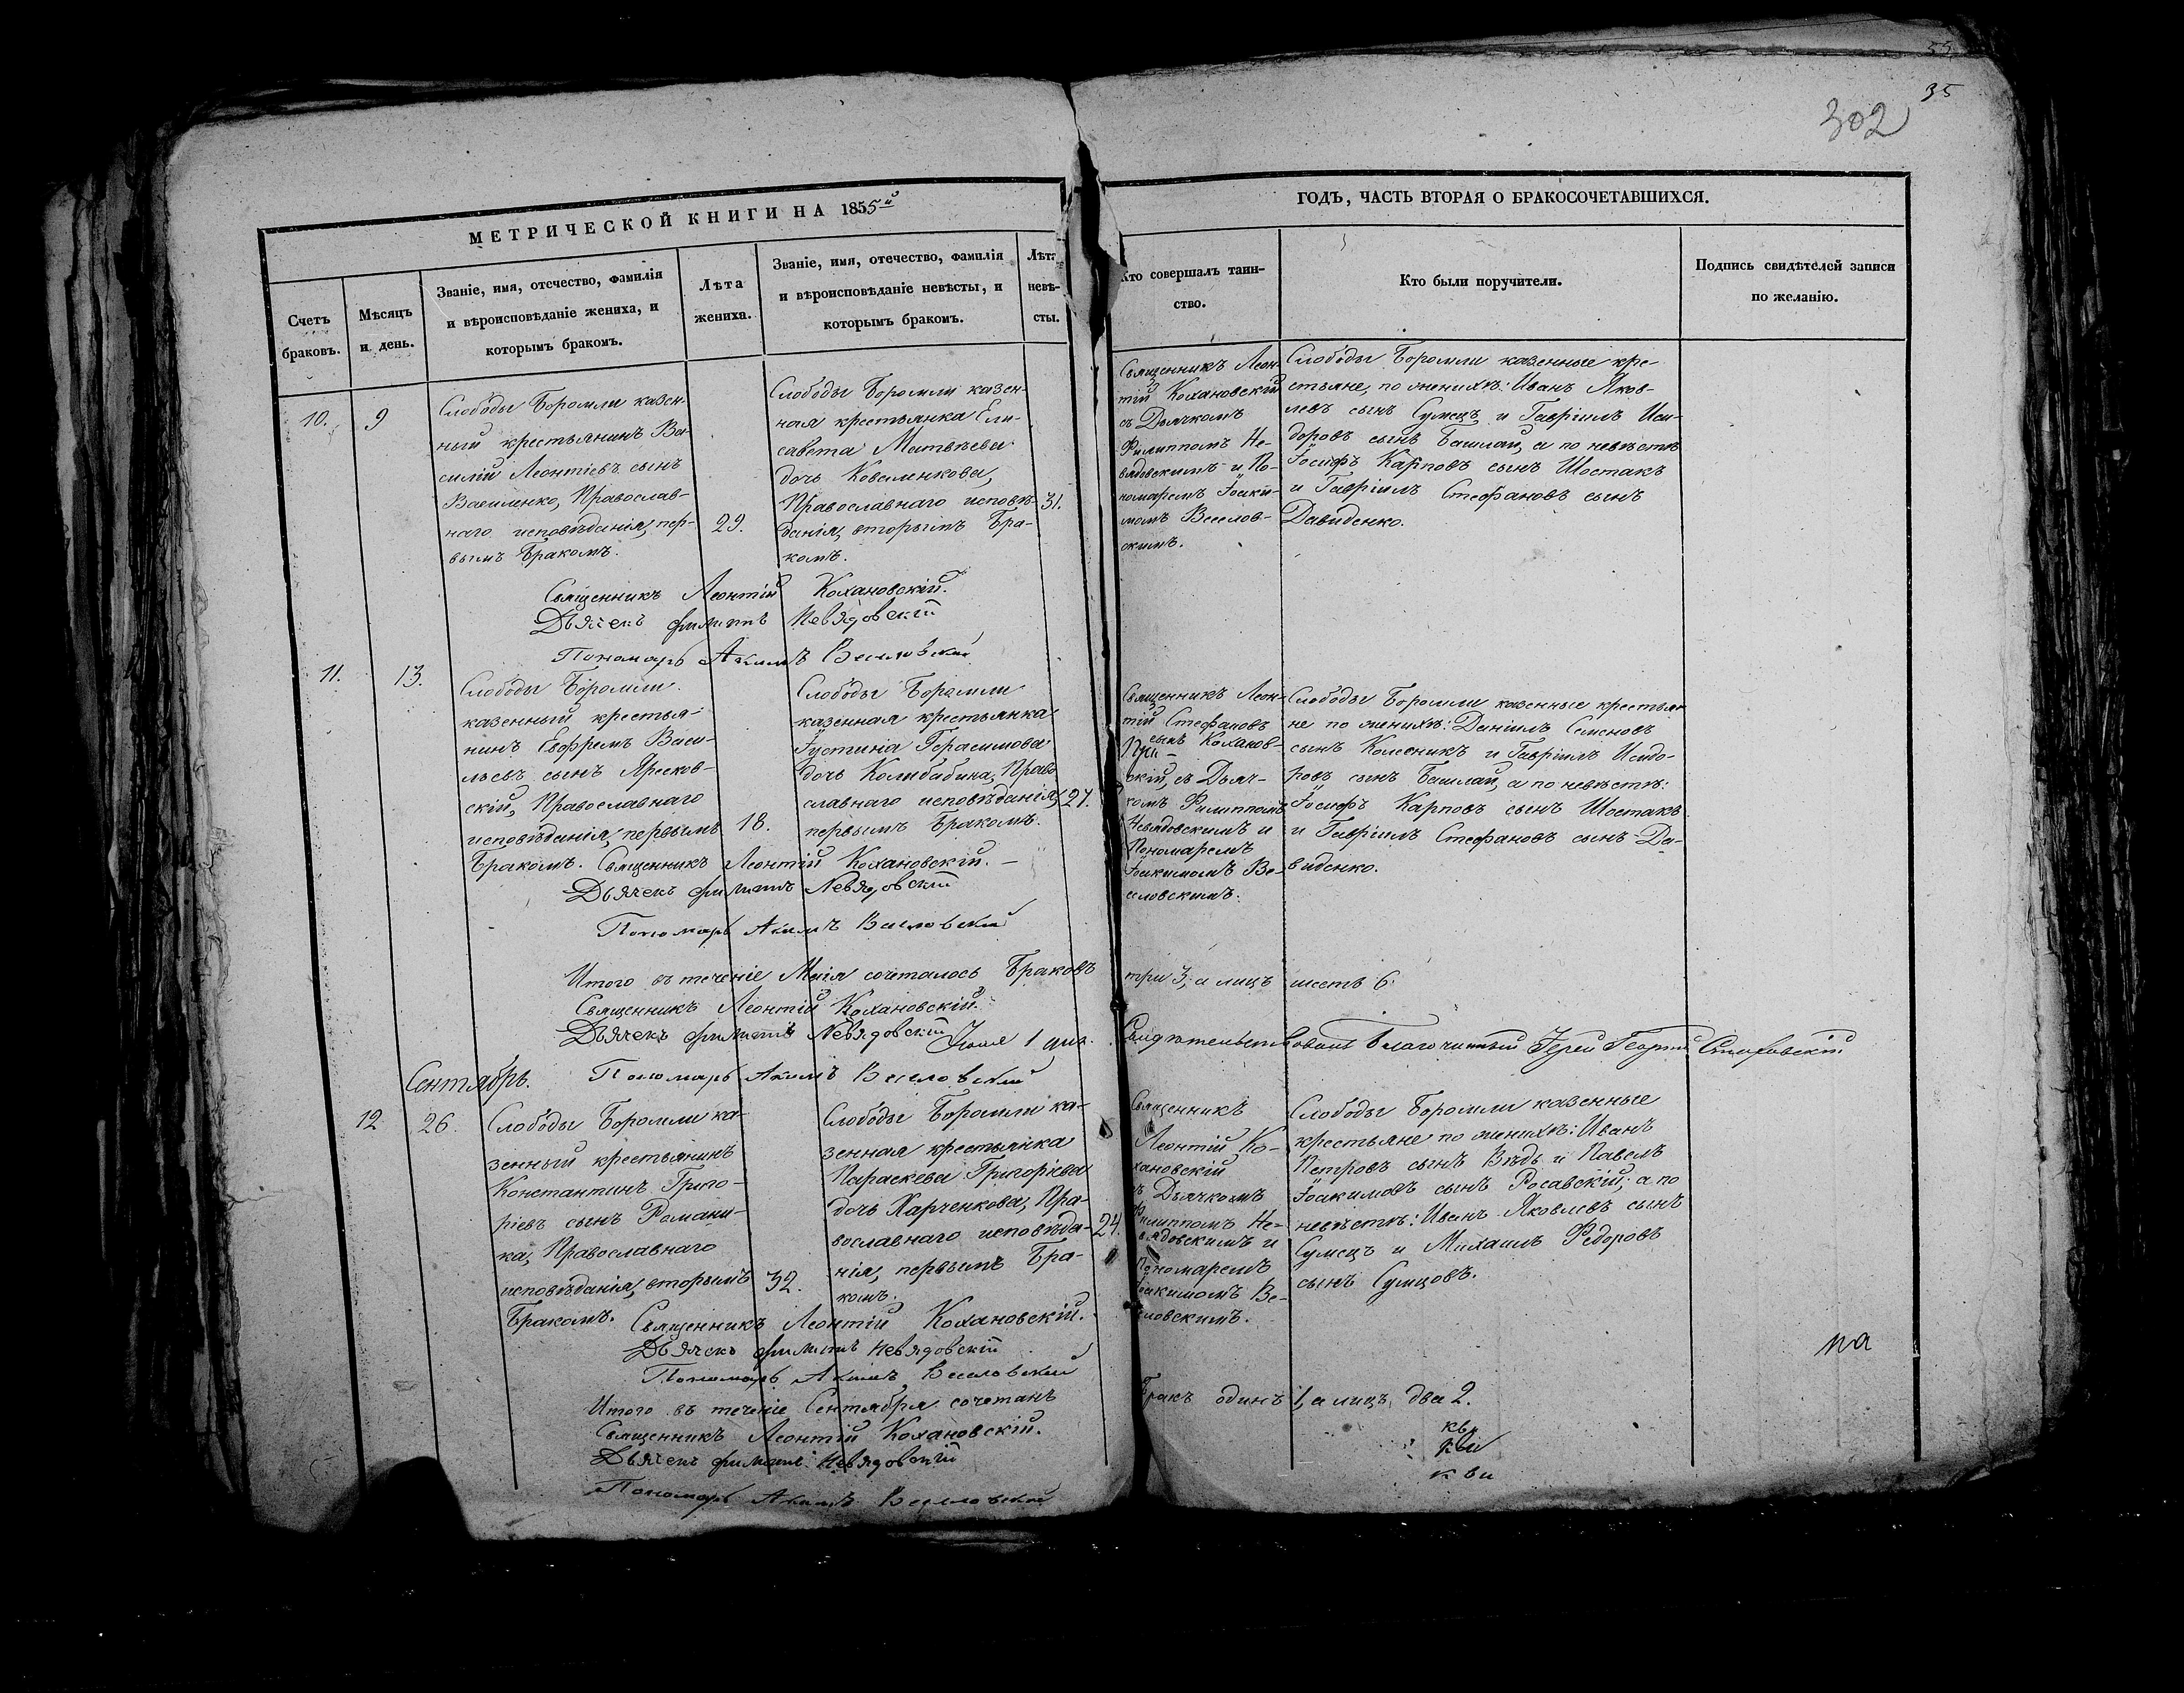 55
35
302
МЕТРИЧЕСКОЙ КНИГИ НА 1855й
ГОДЪ, ЧАСТЬ ВТОРАЯ О БРАКОСОЧЕТАВШИХСЯ.
Счетъ
браковъ.
Мѣсяцъ
и день.
Званіе, имя, отечество, фамилія
и вѣроисповѣданіе жениха, и
которымъ бракомъ.
Лѣта
жениха.
Званіе, имя, отечество, фамилія
и вѣроисповѣданіе невѣсты, и
которымъ бракомъ.
Лѣта
невѣ-
сты.
Кто совершалъ таин-
ство.
Кто были поручители.
Подпись свидѣтелей записи
по желанію.
10.
9
Слободы Боромли казен-
ный крестьянинъ Ва-
силій Леонтіевъ сынъ
Василенко, Православ-
наго исповѣданія, пер-
вымъ бракомъ.
29.
Слободы Боромли казен-
ная крестьянка Ели-
савета Матвѣева
дочь Коваленкова,
Православнаго исповѣ-
данія, вторымъ бра-
комъ.
31.
Священникъ Леон-
тій Кохановскій
съ Дьячкомъ
Филиппомъ Не-
вядовскимъ и По-
номаремъ Іоаки-
момъ Веселов-
скимъ.
Слободы Боромли казенные кре-
стьяне, по женихѣ: Иванъ Яков-
левъ сынъ Сумецъ и Гавріилъ Иси-
доровъ сынъ Башлай, а по невѣстѣ
Іосифъ Карповъ сынъ Шостакъ
и Гавріилъ Стефановъ сынъ
Давиденко.
Священникъ Леонтій Кохановскій.
Дьячекъ Филиппъ Невядовскій
Пономарь Акимъ Веселовскій
11.
13.
Слободы Боромли
казенный крестья-
нинъ Евфремъ Васи-
льевъ сынъ Яресков-
скій, Православнаго
исповѣданія, первымъ
бракомъ.
18.
Слободы Боромли
казенная крестьянка
Іустинія Герасимова
дочь Колибабина, Право
славнаго исповѣданія,
первымъ бракомъ.
27.
Священникъ Леон-
тій Стефановъ
сынъ Коханов-
скій, съ Дьяч-
комъ Филиппомъ
Невядовскимъ и
Пономаремъ
Іоакимомъ Ве-
селовскимъ.
Слободы Боромли казенные крестья-
не по женихѣ: Даніилъ Семеновъ
сынъ Колесникъ и Гавріилъ Исидо-
ровъ сынъ Башлай, а по невѣстѣ:
Іосифъ Карповъ сынъ Шостакъ
и Гавріилъ Стефановъ сынъ Да-
виденко.
Священникъ Леонтій Кохановскій.
Дьячекъ Филиппъ Невядовскій
Пономарь Акимъ Веселовскій
Итого въ теченіе Маія сочеталось браковъ три 3, а лицъ шесть 6.
Священникъ Леонтій Кохановскій.
Дьячекъ Филиппъ Невядовскій
Пономарь Акимъ Веселовскій
1 дня. Свидѣтельствовалъ Благочинный Іерей Георгій
Сентябрь.
12
26.
Слободы Боромли ка-
зенный крестьянинъ
Константинъ Григо-
ріевъ сынъ Романи-
ка, Православнаго
исповѣданія, вторымъ
бракомъ.
32.
Слободы Боромли ка-
зенная крестьянка
Параскева Григоріева
дочь Харченкова, Пра-
вославнаго исповѣда-
нія, первымъ бра-
комъ.
24.
Священникъ
Леонтій Ко-
хановскій
съ Дьячкомъ
Филиппомъ Не-
вядовскимъ и
Пономаремъ
Іоакимомъ Ве-
селовскимъ.
Слободы Боромли казенные
крестьяне по женихѣ: Иванъ
Петровъ сынъ Вѣдь и Павелъ
Іоакимовъ сынъ Росавскій; а по
невѣстѣ: Иванъ Яковлевъ сынъ
Сумецъ и Михаилъ Федоровъ
сынъ Сумцовъ.
Священникъ Леонтій Кохановскій.
Дьячекъ Филиппъ Невядовскій
Пономарь Акимъ Веселовскій
Итого въ теченіе Сентября сочетанъ бракъ одинъ 1, а лицъ два 2.
Священникъ Леонтій Кохановскій.
Дьячекъ Филиппъ Невядовскій
Пономарь Акимъ Веселовскій
на